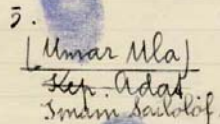 5.
(Umar Ula)
Kep. Adat
Imam Sailolof